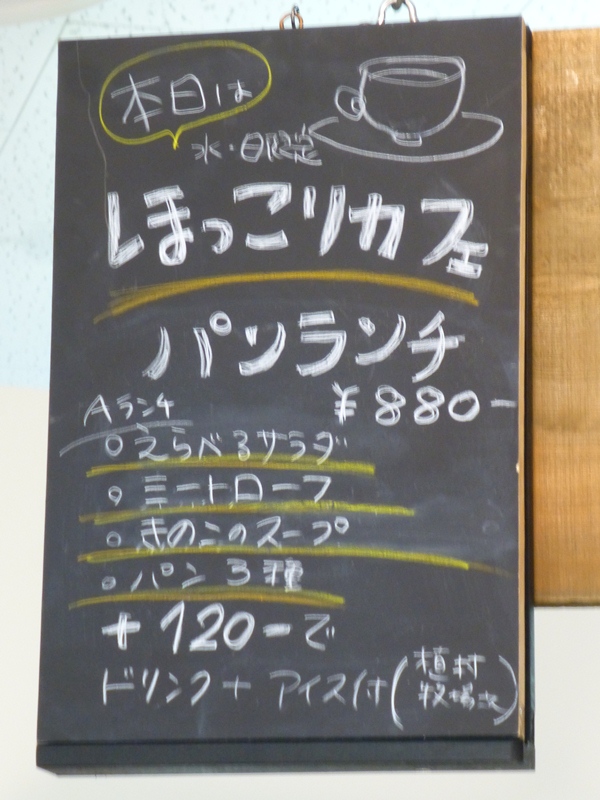 本日は
水・日限定
ほっこりカフェ
パンランチ
¥880-
Aランチ
○えらべるサラダ
○ミートローフ
○きのこのスープ
○パン3種
+120-で
ドリンク+アイス付(植村
牧場の)